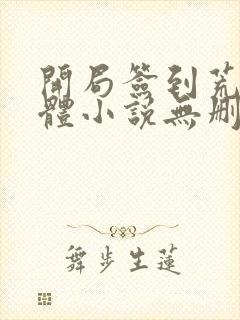 開局簽到荒
體小說無刪
舞步生蓮